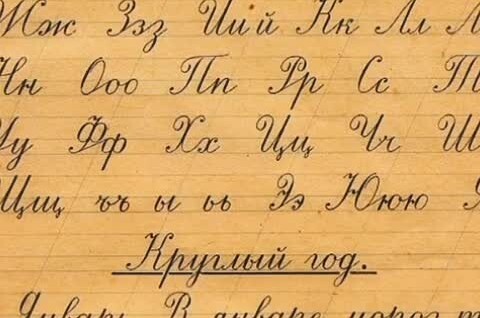 Жж Ззз Ииӣ Кк Лл
Нн Ооо Пп Рр Сс Т
Уу Фф Хх Цц Чч Ш
Щщ ъъ ы ьь Ээ Ююю Я
Круглый год.
Январь. В январе мороз